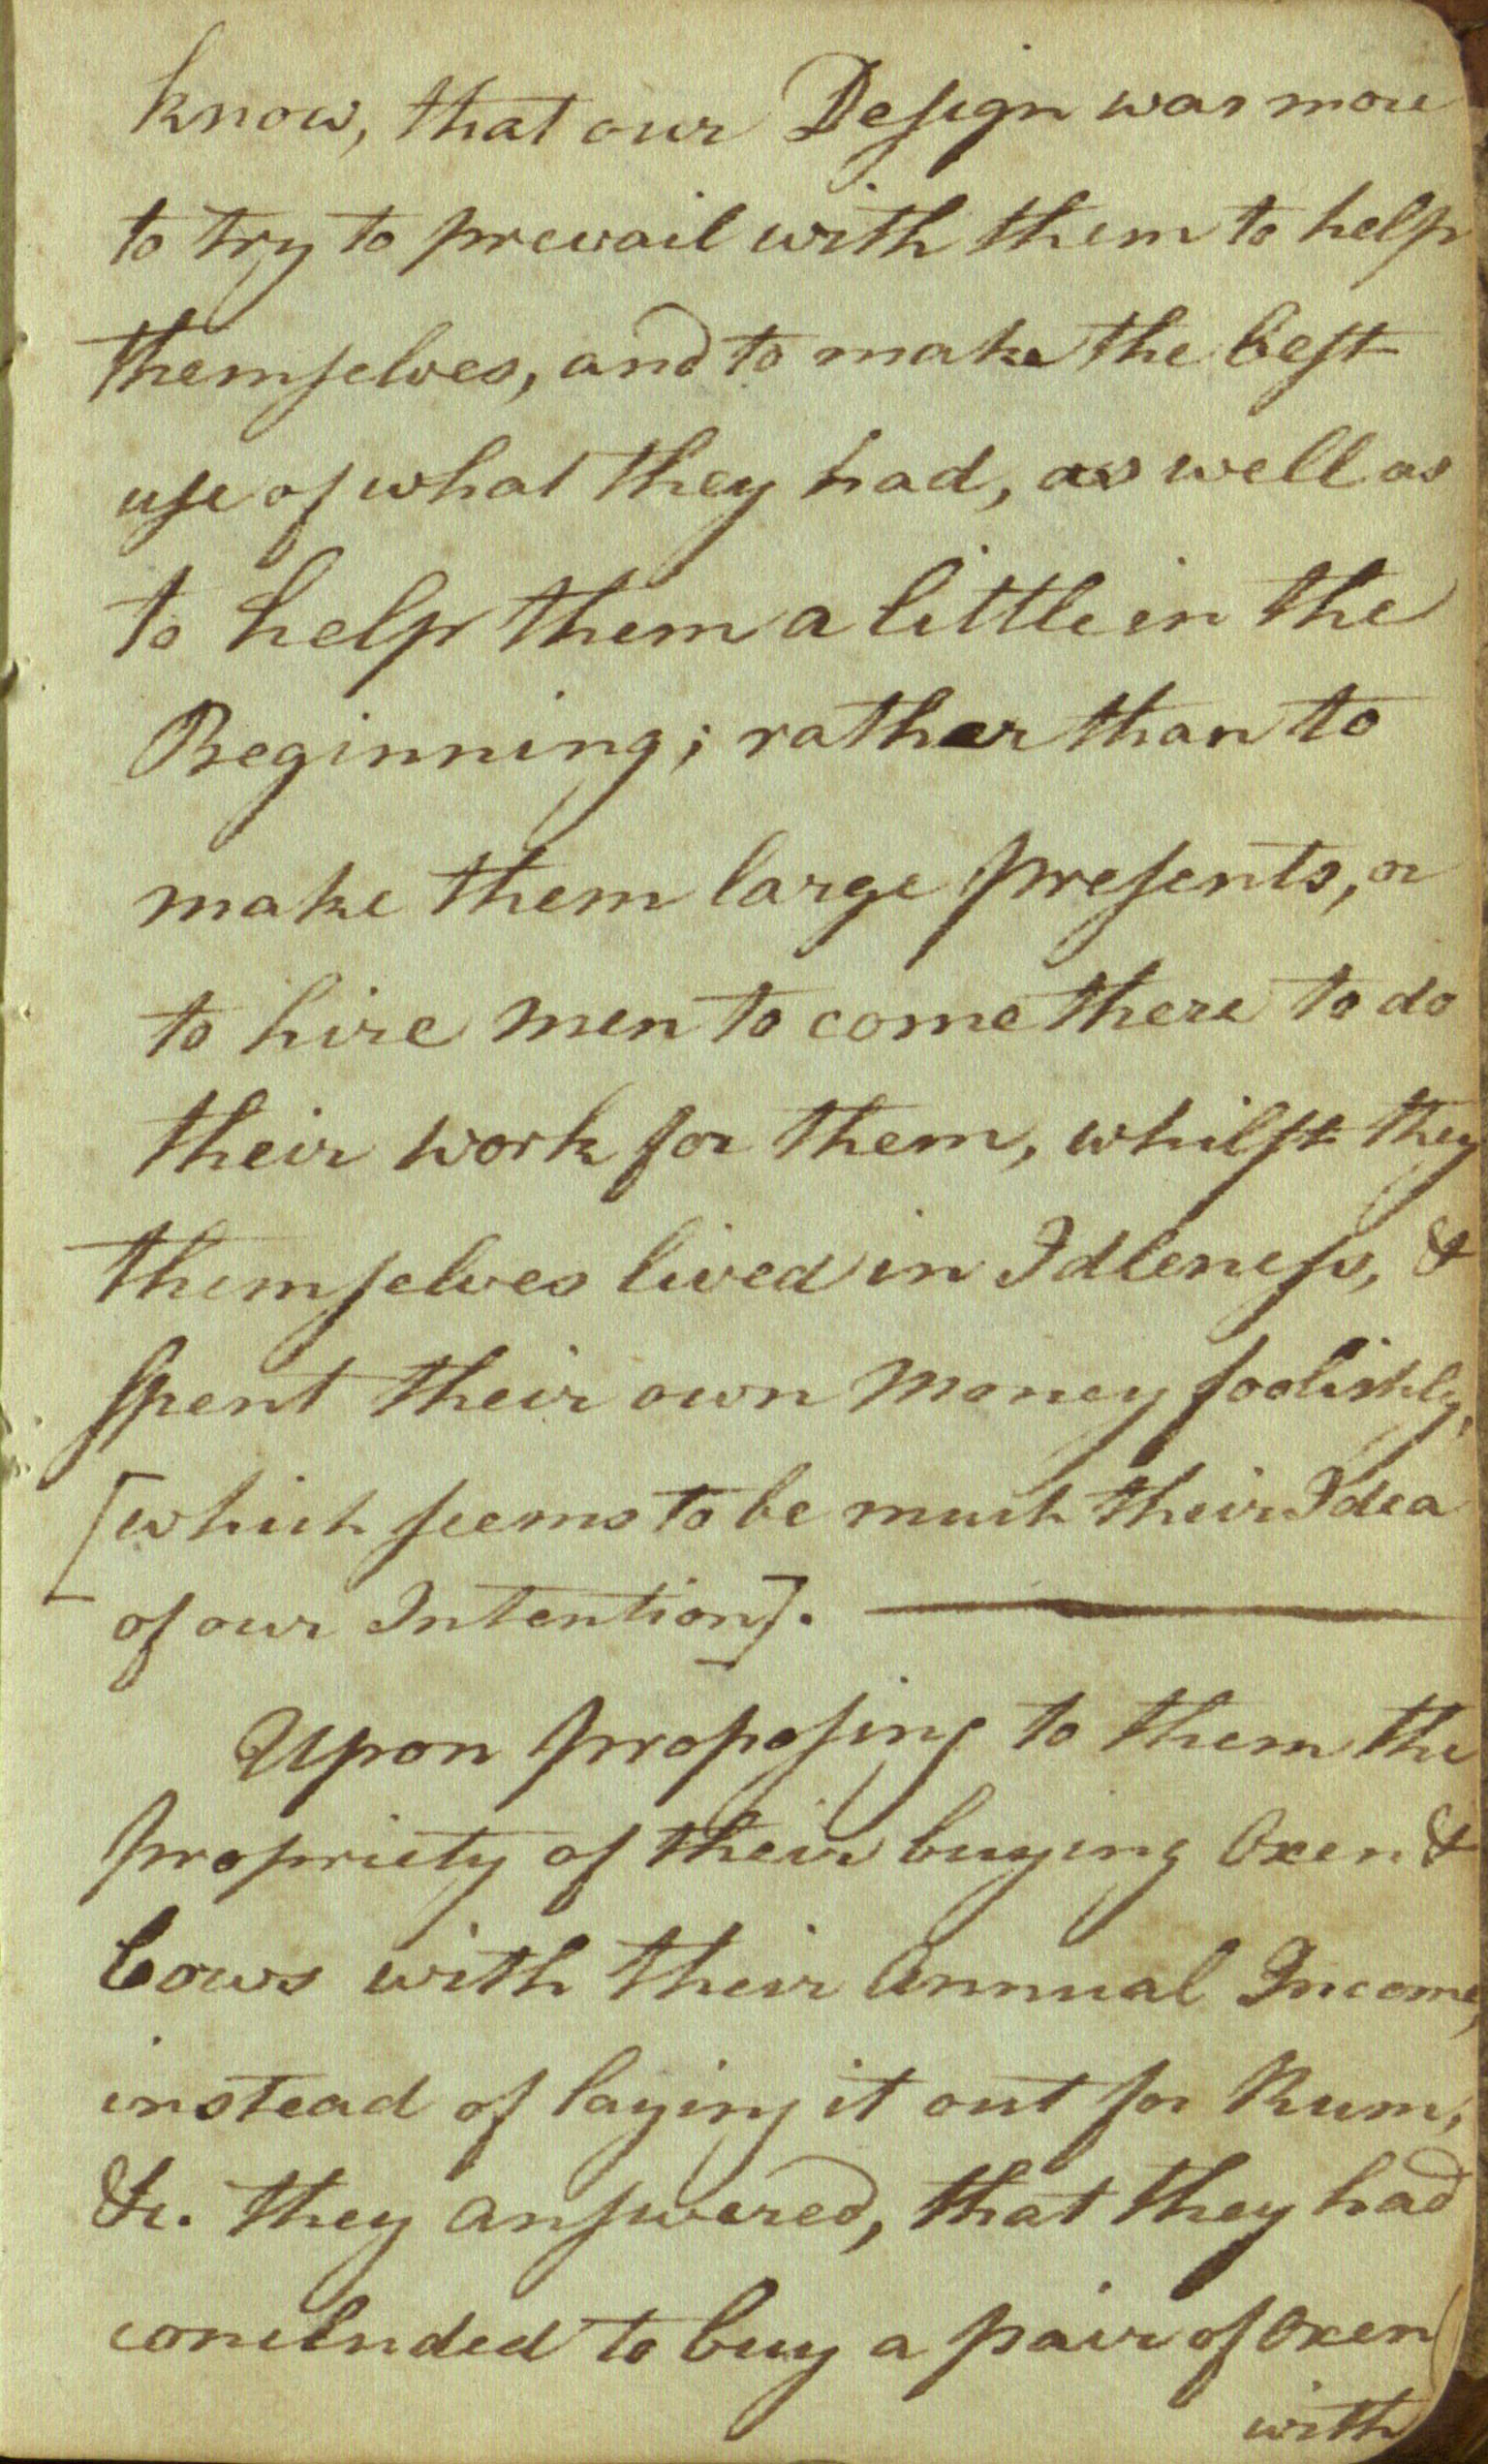 know, that our Design was more
to try to prevail with them to help
themselves, and to make the best
use of what they had, as well as
to help them a little in the
Beginning; rather than to
make them large presents, or
to hire men to come there to do
their work for them, whilst they
themselves lived in Idleness, &
spent their own money foolishly,
[which seems to be much their Idea
of our Intention]. —
Upon proposing to them the
propriety of their buying Oxen &
Cows with their Annual Income,
instead of laying it out for Rum,
&c. they answered, that they had
concluded to buy a pair of Oxen
with